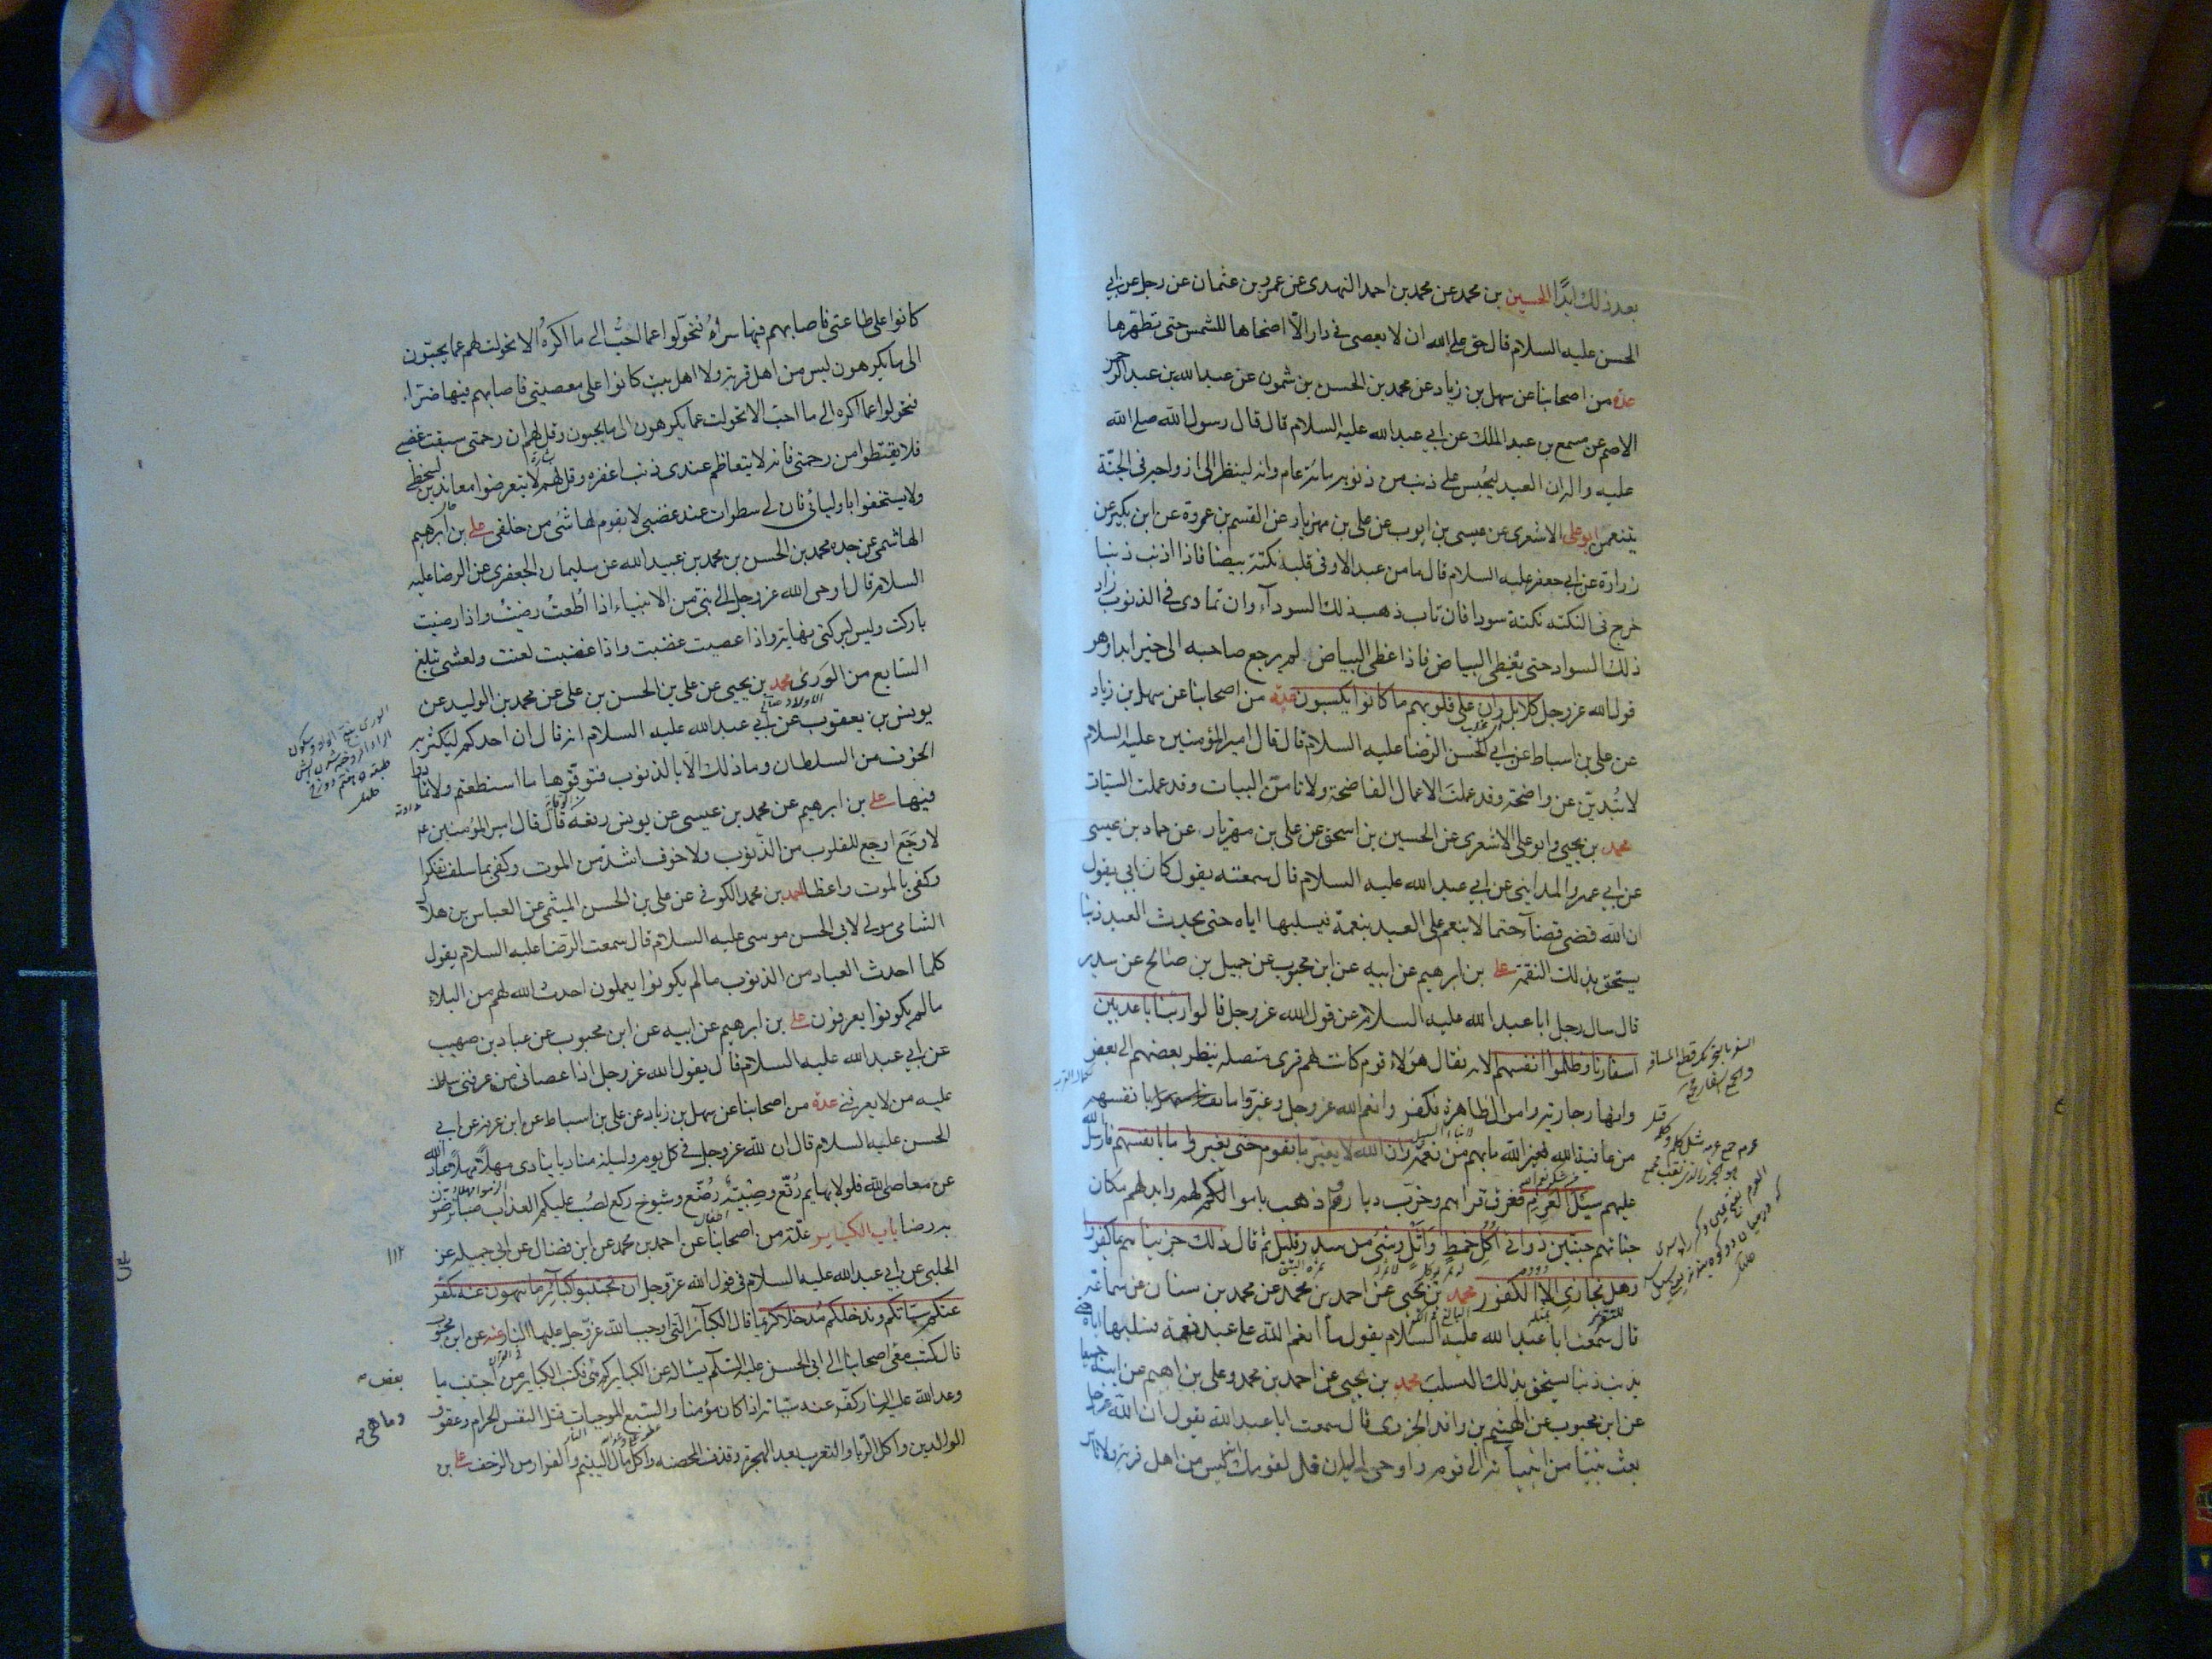 بعد ذلك ابدًا الحسين بن محمد عن محمد بن احمد النهدى عن عمرو بن عثمان عن رجل عن ابي
الحسن عليه السلام قال حق على الله ان لا يعصى في دار الّا اضحاها للشمس حتى تطهّرها
عدة من اصحابنا عن سهل بن زياد عن محمد بن الحسن بن شمون عن عبد الله بن عبد الرحمن
الاصم عن مسمع بن عبد الملك عن ابي عبد الله عليه السلام قال قال رسول الله صلى الله
عليه واله ان العبد ليُحبس على ذنب من ذنوبه مائة عام وانه لينظر الى ازواجه في الجنّة
يتنعمن ابو على الاشعرى عن عيسى بن ايوب عن على بن مهزيار عن القسم بن عروة عن ابن بكير عن
زرارة عن ابي جعفر عليه السلام قال ما من عبد الا وفى قلبه نكتة بيضا فاذا اذنب ذنبا
خرج في النكته نكتة سودا فان تاب ذهب ذلك السودآء وان تمادى في الذنوب زاد
ذلك السواد حتى يغطى البياض فاذا غطى البياض لم يرجع صاحبه الى خير ابدا وهو
قول الله عز وجل كلا بل ران على قلوبهم ما كانوا يكسبون عدّة من اصحابنا عن سهل بن زياد
عن على بن اسباط عن ابي الحسن الرضا عليه السلام قال قال امير المؤمنين عليه السلام
لا تُبدينّ عن واضحة وقد عملت الاعمال الفاضحة ولا تامن البيات وقد عملت السيئات
محمد بن يحيى وابو على الاشعرى عن الحسين بن اسحق عن على بن مهزيار عن حماد بن عيسى
عن ابي عمرو المدايني عن ابي عبد الله عليه السلام قال سمعته يقول كان ابي يقول
ان الله قضى قضآء حتما لا ينعم على العبد بنعمة فيسلبها اياه حتى يحدث العبد ذنبا
يستحق بذلك النقمة على بن ابرهيم عن ابيه عن ابن محبوب عن جميل بن صالح عن سدير
قال سال رجل ابا عبد الله عليه السلام عن قول الله عز وجل قالوا ربّنا باعد بين
اسفارنا وظلموا انفسهم الاية فقال هؤلاء قوم كانت لهم قرى متصلة ينظر بعضهم الى بعض
وانهار جارية واموال ظاهرة فكفروا نعم الله عز وجل وغيّروا ما بانفسهم
من عافية الله فغير الله ما بهم من نعمة وان الله لا يغيّر ما بقوم حتى يغيروا ما بانفسهم فارسل الله
عليهم سيل العرم فغرق قراهم وخرّب ديارهم وذهب باموالهم وابدلهم مكان
جناتهم جنتين ذواتى اُكُلٍ خمطٍ وَاَثْلٍ وشىء من سدر قليل ثم قال ذلك جزيناهم بما كفروا
وهل نجازى الا الكفور محمد بن يحيى عن احمد بن محمد عن محمد بن سنان عن سماعة
قال سمعت ابا عبد الله عليه السلام يقول ما انعم الله على عبد نعمة فسلبها اياه حتى
يذنب ذنبا يستحق بذلك السلب محمد بن يحيى عن احمد بن محمد وعلى بن ابراهيم عن ابيه جميعا
عن ابن محبوب عن الهيثم بن واقد الجزرى قال سمعت ابا عبد الله يقول ان الله عز وجل
بعث نبيّا من انبيآئه الى قومه واوحى اليه ان قل لقومك انه ليس من اهل قرية ولا ناس
كانوا على طاعتى فاصابهم فيها سرّاء فتحوّلوا عما احبّ الى ما اكره الا تحولت لهم عما يحبّون
الى ما يكرهون ليس من اهل قرية ولا اهل بيت كانوا على معصيتى فاصابهم فيها ضرّاء
فتحولوا عما اكره الى ما احب الا تحولت عما يكرهون الى ما يحبون وقل لهم ان رحمتى سبقت غضبى
فلا يقنّطوا من رحمتى فانه لا يتعاظم عندى ذنب اغفره وقل لهم لا يتعرضوا معاندين لسخطى
ولا يستخفوا باوليائى فان لى سطوات عند غضبى لا يقوم لها شىء من خلقى على بن ابرهيم
الهاشمى عن جده محمد بن الحسن بن محمد بن عبيد الله عن سليمان الجعفرى عن الرضا عليه
السلام قال اوحى الله عز وجل الى نبىّ من الانبياء اذا اُطعتُ رضيتُ واذا رضيت
باركت وليس لبركتى نهاية واذا عصيت غضبت واذا غضبت لعنت ولعنتى تبلغ
السابع من الوَرَى محمد بن يحيى عن على بن الحسن بن على عن محمد بن الوليد عن
يونس بن يعقوب عن ابي عبد الله عليه السلام انه قال ان احدكم ليكثر به
الخوف من السلطان وما ذلك الا بالذنوب فتوقّوها ما استطعتم ولا تمادوا
فيها على بن ابرهيم عن محمد بن عيسى عن يونس رفعه قال قال امير المؤمنين ع
لا وَجَع اوجع للقلوب من الذنوب ولا خوف اشدّ من الموت وكفى بما سلف تفكرا
وكفى بالموت واعظا احمد بن محمد الكوفى عن على بن الحسن الميثمى عن العباس بن هلال
الشامى مولى لابى الحسن موسى عليه السلام قال سمعت الرّضا عليه السلام يقول
كلما احدث العباد من الذنوب ما لم يكونوا يعملون احدث الله لهم من البلاء
ما لم يكونوا يعرفون على بن ابرهيم عن ابيه عن ابن محبوب عن عباد بن صهيب
عن ابي عبد الله عليه السلام قال يقول الله عز وجل اذا عصانى من عرفنى سلطت
عليه من لا يعرفنى عدة من اصحابنا عن سهل بن زياد عن على بن اسباط عن ابن عرفة عن ابي
الحسن عليه السلام قال ان لله عز وجل في كل يوم وليلة مناديا ينادى مهلًا مهلًا عباد الله
عن معاصى الله فلولا بهايم رُتّع وصِبْيَة رُضّع وشيوخ ركع لصُبّ عليكم العذاب صبا ترضون
به رضا باب الكباير عدّة من اصحابنا عن احمد بن محمد عن ابن فضال عن ابى جميله عن
۱۱۲
الحلبى عن ابي عبد الله عليه السلام في قول الله عزّ وجل ان تجتنبوا كبآئر ما تنهون عنه نكفر
عنكم سيّئاتكم وندخلكم مُدخلا كريما قال الكبآئر التى اوجب الله عزّ وجل عليها النار عنه عن ابن محبوب
قال كتب معى اصحابنا الى ابى الحسن عليه السّلام يساله عن الكباير كم هى فكتب الكباير من اجتنب ما
بعض
وعد الله عليه النار كفّر عنه سيّئاته اذا كان مؤمنا والسبع الموجبات قتل النفس الحرام وعقوق
وما هى
الوالدين واكل الرّبا والتعرب بعد الهجرة وقذف المحصنه واكل مال اليتيم والفرار من الزحف على بن